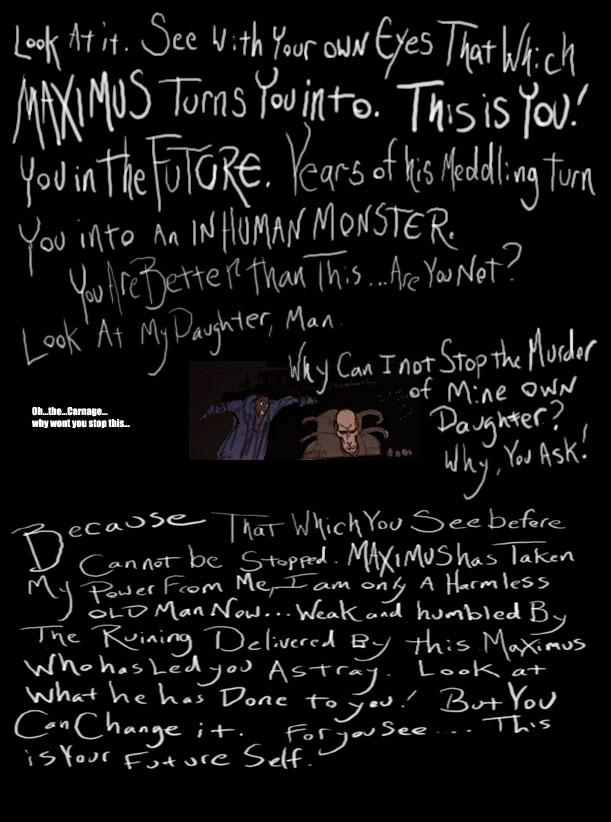 Look At it. See With Your OWN Eyes That Which
MAXIMUS Turns You into. This is You!
You in the FUTURE. Years of his Meddling Turn
You into An INHUMAN MONSTER.
You Are Better Than This...Are You Not?
Look At My Daughter, Man.
Why Can I not Stop the Murder
of Mine OWN
Daughter?
Why, You Ask!
Oh...the...Carnage...
why wont you stop this...
Because That Which You See before
Cannot be Stopped. MAXIMUS has Taken
My Power From Me, I am only A Harmless
OLD Man Now... Weak and humbled By
The Ruining Delivered By this Maximus
Who has Led you Astray. Look at
What he has Done to you! But You
Can Change it. For you See.... This
is Your Future Self.